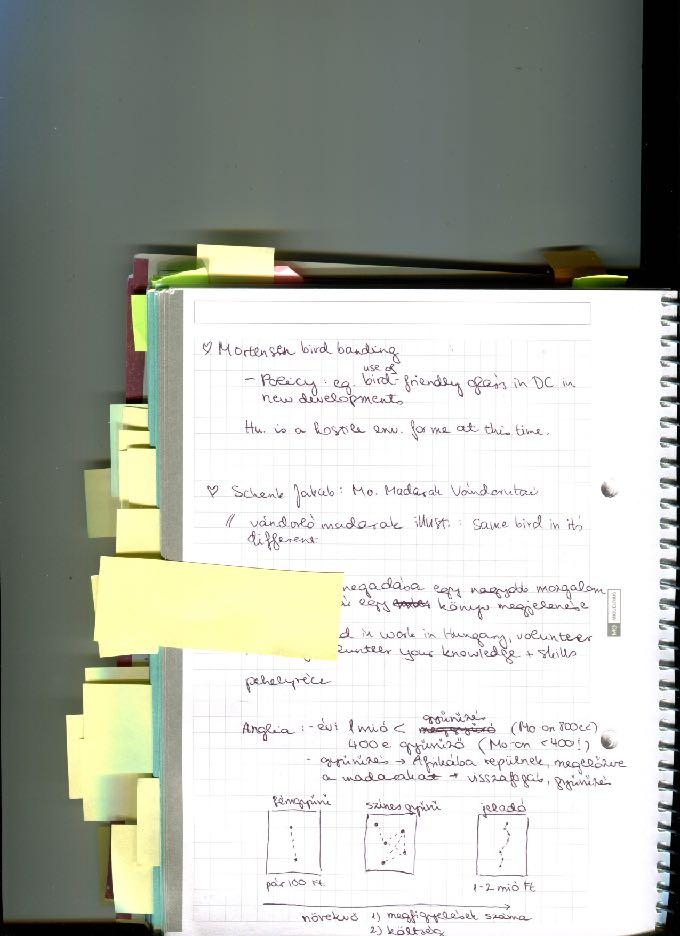 ♡ Mortensen bird banding
use of
- Policy: eg. bird-friendly glass in DC in
new developments
Hu. is a hostile env. for me at this time.
♡ Schenk Jakab: Mo. Madarak Vándorutai
// vándorló madarak illust.: same bird in its
different
megadása egy nagyobb mozgalom
egy könyv megjelenése
d in work in Hungary, volunteer
volunteer your knowledge + skills
pehelyréce
gyűrűzés
Anglia: - évi 1 mió < (Mo-on 800cc)
400 e gyűrűző (Mo-on <400!)
- gyűrűzés → Afrikába repülnek, megelőzve
a madarakat → visszafogás, gyűrűzés
fémgyűrű színes gyűrű jeladó
pár 100 Ft. 1-2 mió Ft
növekvő 1) megfigyelések száma
2) költség